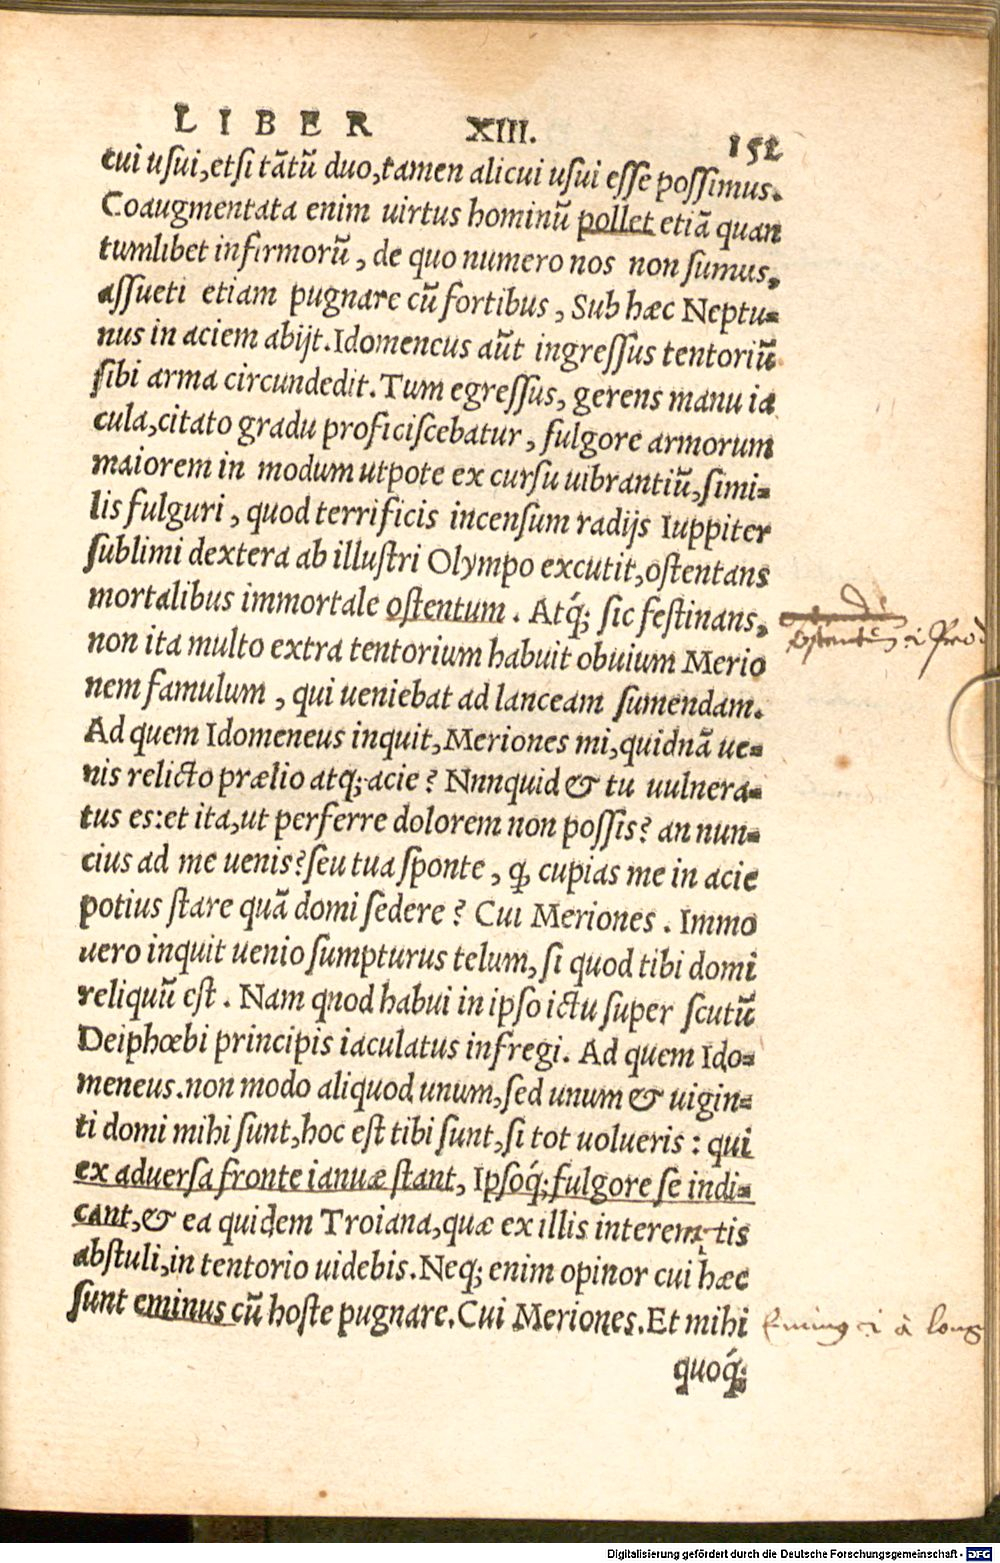 LIBER XIII. 152
cui usui, etsi tātū duo, tamen alicui usui esse possimus.
Coaugmentata enim uirtus hominū pollet etiā quan
tumlibet infirmorū, de quo numero nos non sumus,
assueti etiam pugnare cū fortibus, Sub hæc Neptu-
nus in aciem abijt. Idomeneus aūt ingressus tentoriū
sibi arma circundedit. Tum egressus, gerens manu ia
cula, citato gradu proficiscebatur, fulgore armorum
maiorem in modum utpote ex cursu uibrantiū, simi-
lis fulguri, quod terrificis incensum radijs Iuppiter
sublimi dextera ab illustri Olympo excutit, ostentans
mortalibus immortale ostentum. Atq́; sic festinans,
Ostentū .i.
non ita multo extra tentorium habuit obuium Merio
nem famulum, qui ueniebat ad lanceam sumendam.
Ad quem Idomeneus inquit, Meriones mi, quidnā ue-
nis relicto prælio atq; acie? Nnnquid & tu uulnera-
tus es: et ita, ut perferre dolorem non possis? an nun-
cius ad me uenis? seu tua sponte, q̧ cupias me in acie
potius stare quā domi sedere? Cui Meriones. Immo
uero inquit uenio sumpturus telum, si quod tibi domi
reliquū est. Nam qnod habui in ipso ictu super scutū
Deiphœbi principis iaculatus infregi. Ad quem Ido-
meneus. non modo aliquod unum, sed unum & uigin-
ti domi mihi sunt, hoc est tibi sunt, si tot uolueris: qui
ex aduersa fronte ianuæ stant, Ipsoq́; fulgore se indi-
cant, & ea quidem Troiana, quæ ex illis interemtis
abstuli, in tentorio uidebis. Neq; enim opinor cui hæc
sunt eminus cū hoste pugnare. Cui Meriones. Et mihi
Eminus .i. à long
quoq́;
Digitalisierung gefördert durch die Deutsche Forschungsgemeinschaft - DFG